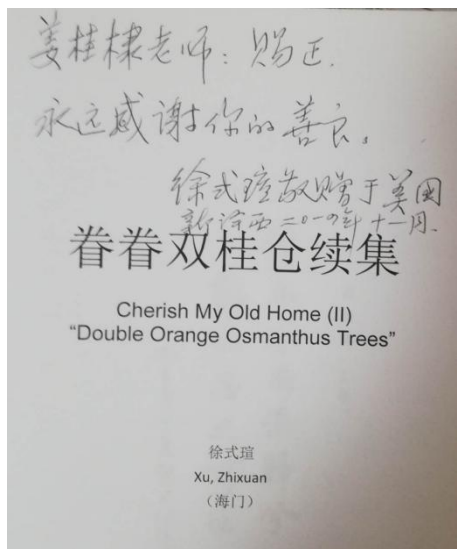 姜桂棣老师：赐正.
永远感谢你的善良。
徐式瑄敬赠于美國
新泽西二〇一四年十一月.
眷眷双桂仓续集
Cherish My Old Home (II)
“Double Orange Osmanthus Trees”
徐式瑄
Xu, Zhixuan
（海门）